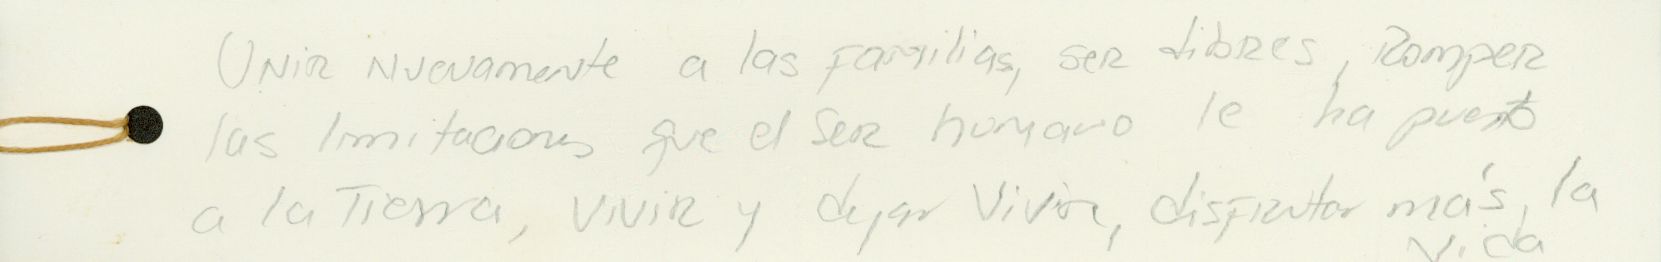 Unir nuevamente a las familias, ser libres, Romper
las limitaciones que el ser humano le ha puesto
a la Tierra, vivir y dejar vivir, disfrutar más, la
vida